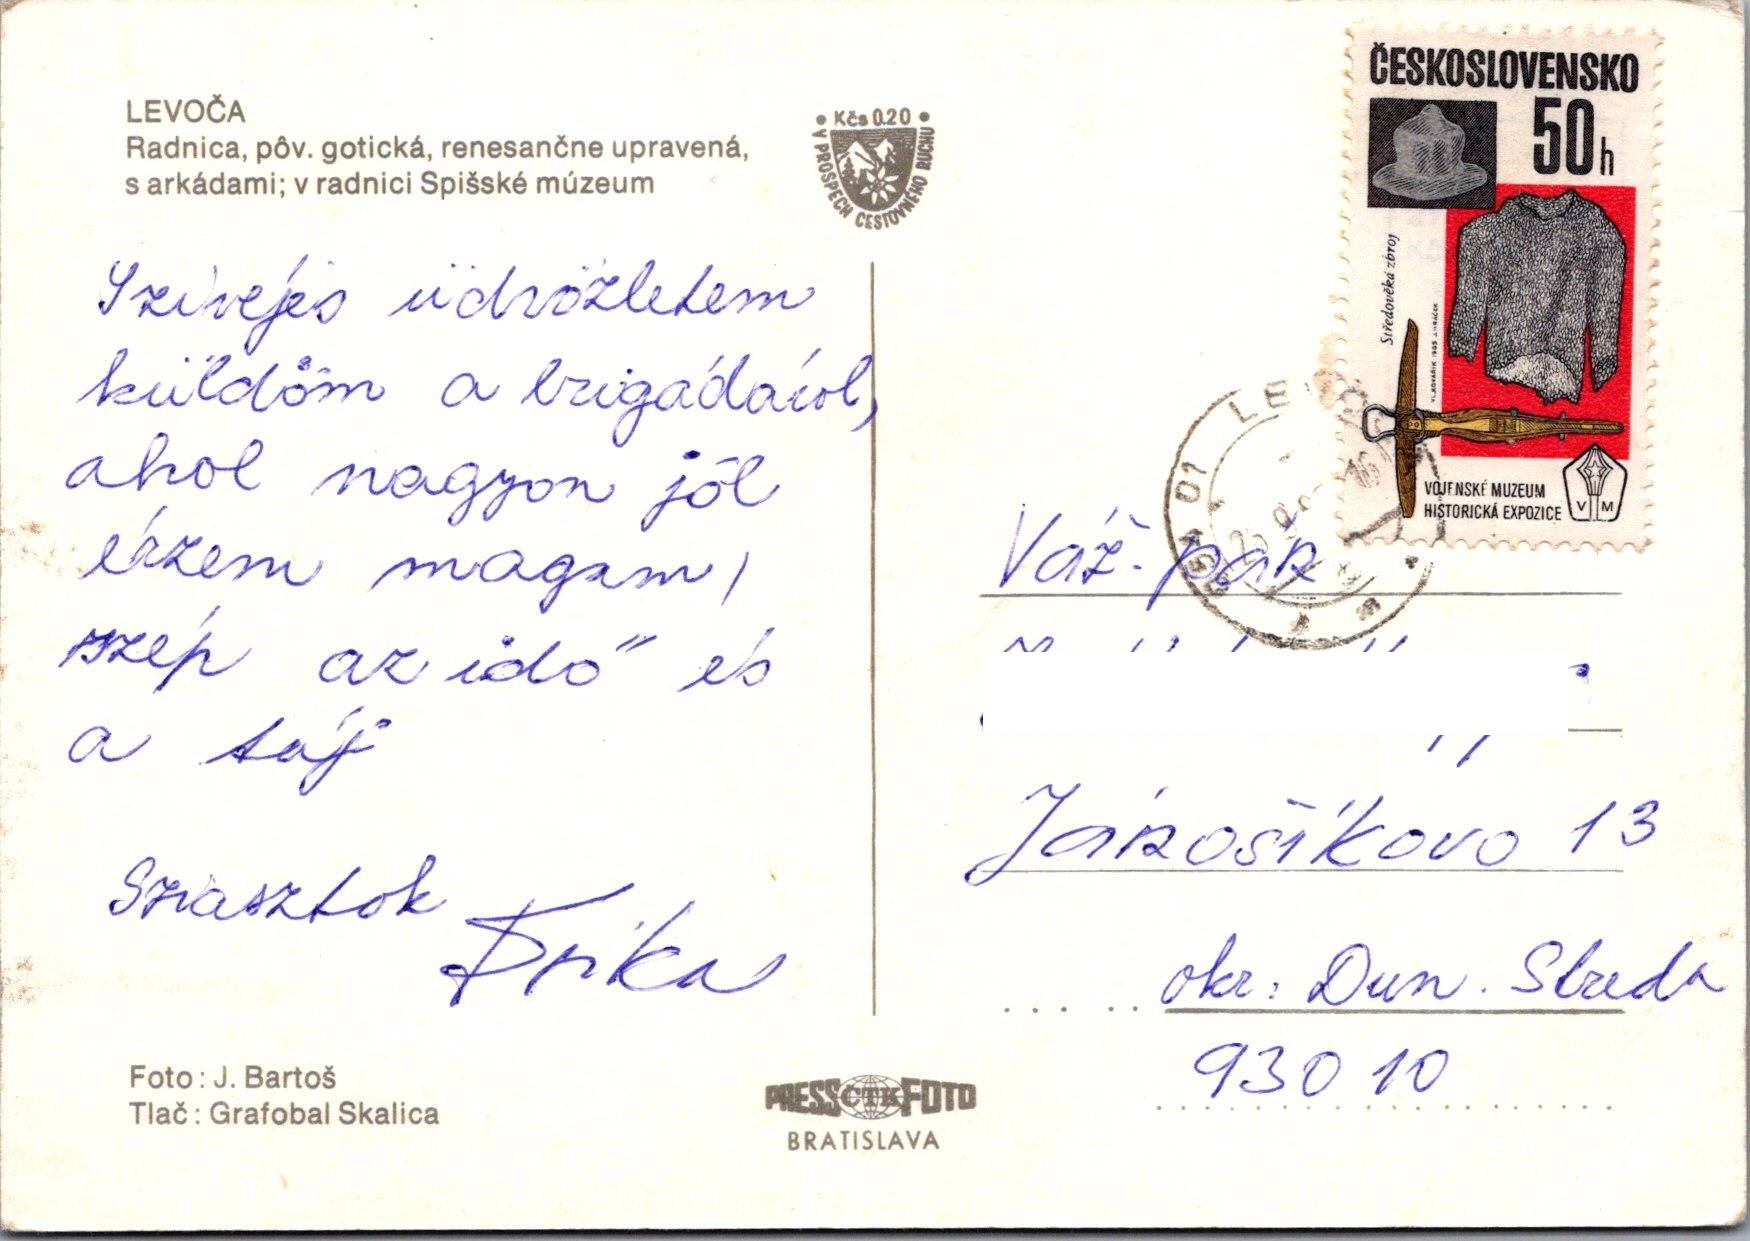 LEVOČA
Radnica, pôv. gotická, renesančne upravená,
s arkádami; v radnici Spišské múzeum
Kčs 0.20
V PROSPECH CESTOVNÉHO RUCHU
ČESKOSLOVENSKO
50h
Středověká zbroj
VOJENSKÉ MUZEUM
HISTORICKÁ EXPOZICE
V M
054 01 LEVOČA
Szivéjes üdvözletem
küldöm a brigádáról,
ahol nagyon jól
érzem magam,
szép az idő és
a táj
Sziasztok
Erika
Váž. pár
Járošíkovo 13
okr: Dun. Streda
930 10
Foto: J. Bartoš
Tlač: Grafobal Skalica
PRESS ČTK FOTO
BRATISLAVA